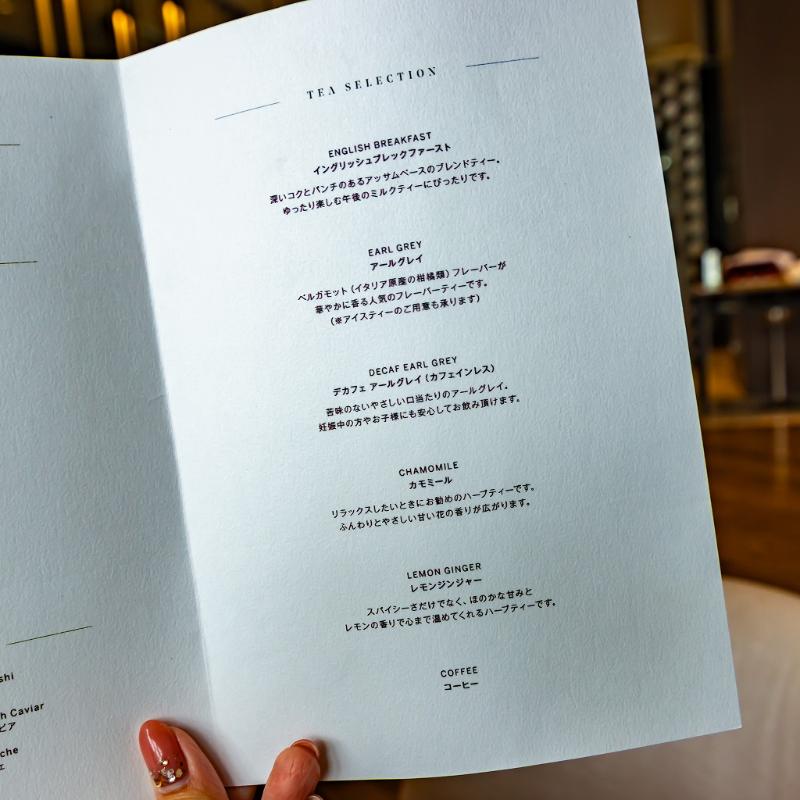 TEA SELECTION
ENGLISH BREAKFAST
イングリッシュブレックファースト
深いコクとパンチのあるアッサムベースのブレンドティー。
ゆったり楽しむ午後のミルクティーにぴったりです。
EARL GREY
アールグレイ
ベルガモット（イタリア原産の柑橘類）フレーバーが
華やかに香る人気のフレーバーティーです。
（※アイスティーのご用意も承ります）
DECAF EARL GREY
デカフェ アールグレイ（カフェインレス）
苦味のないやさしい口当たりのアールグレイ。
妊娠中の方やお子様にも安心してお飲み頂けます。
CHAMOMILE
カモミール
リラックスしたいときにお勧めのハーブティーです。
ふんわりとやさしい甘い花の香りが広がります。
LEMON GINGER
レモンジンジャー
スパイシーさだけでなく、ほのかな甘みと
レモンの香りで心まで温めてくれるハーブティーです。
COFFEE
コーヒー
Caviar